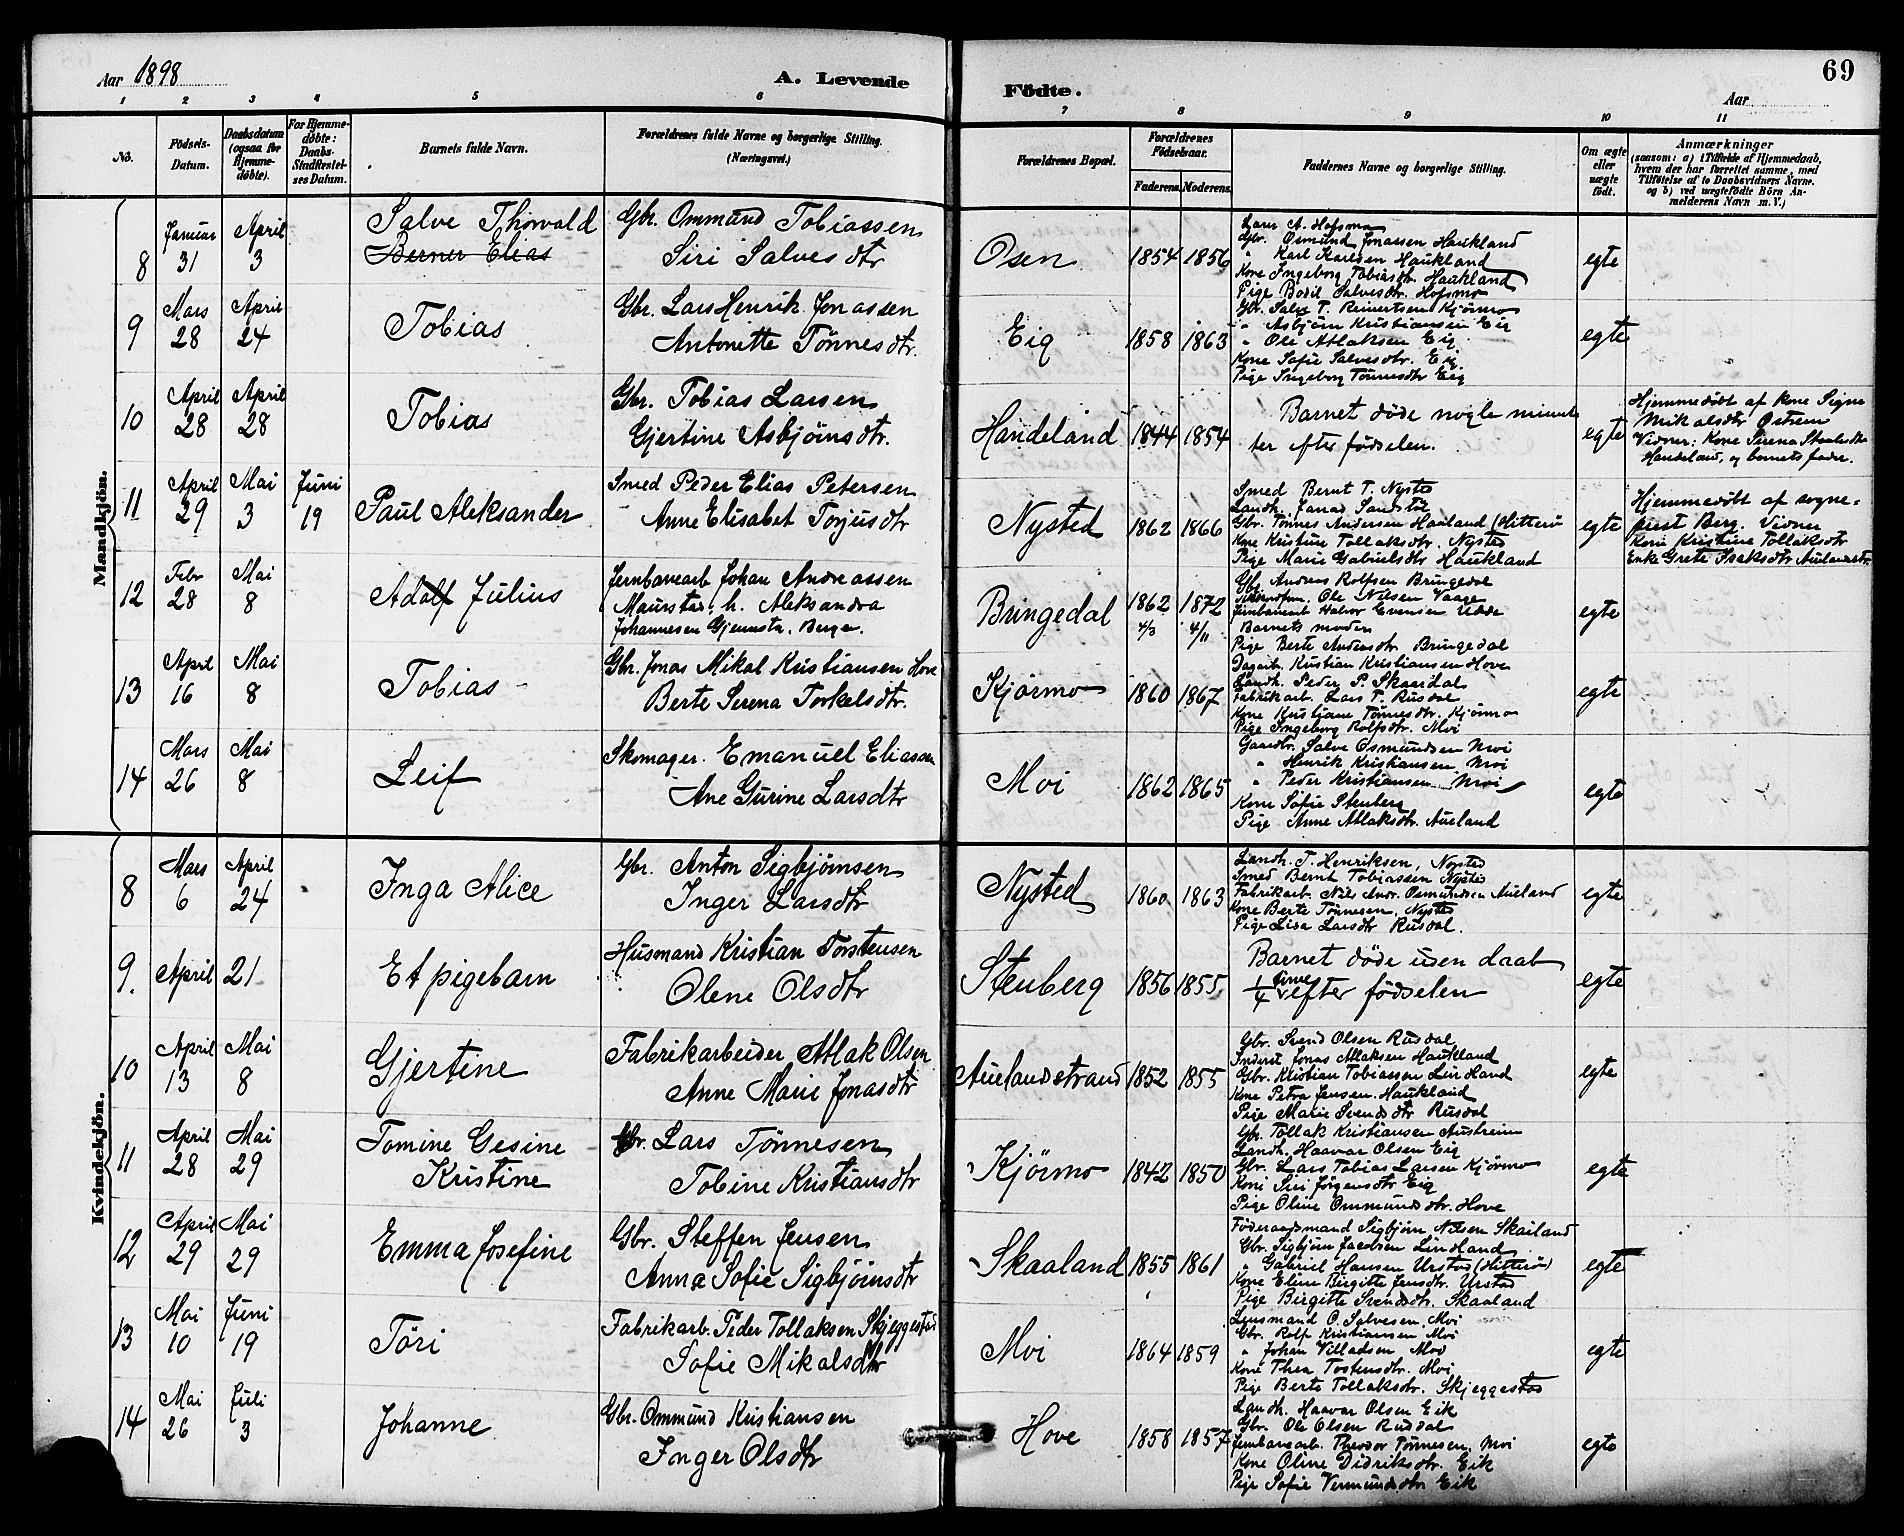 Aar 1898
A. Levende
Födte.
69
Aar
1 2 3 4 5 6 7 8 9 10 11
No.
Födsels-Datum.
Daabsdatum (ogsaa for Hjemme-döbte).
For Hjemme-döbte: Daabs-Stadfæstel-ses Datum.
Barnets fulde Navn.
Forældrenes fulde Navne og borgerlige Stilling. (Næringsvei.)
Forældrenes Bopæl.
Forældrenes Födselsaar.
Faderens. Moderens.
Faddernes Navne og borgerlige Stilling.
Om ægte eller uægte födt.
Anmærkninger
(saasom: a) i Tilfælde af Hjemmedaab, hvem der har forrettet samme, med Tilföielse af to Daabsvidners Navne. og b) ved uægtefödte Börn Anmelderens Navn m. V.)
Mandkjön.
8 Januar 31 April 3 Salve Thorvald
Berner Elias
Gbr. Ommund Tobiassen
Siri Salvesdtr
Osen 1854 1856
Lars A. Hofsmo
Gbr. Osmund Jonassen Haukland
" Karl Karlsen Haukland
Kone Ingeborg Tobiasdtr. Haukland
Pige Bodil Salvesdtr. Hofsmo
egte
9 Mars 28 April 24 Tobias
Gbr. Lars Henrik Jonassen
Antonette Tönnesdtr.
Eig 1858 1863
Gbr. Salve T. Reinertsen Kjörmo
" Asbjörn Kristiansen Eig
" Ole Atlaksen Eig
Kone Sofie Salvesdtr. Eig
Pige Ingeborg Tönnesdtr Eig
egte
10 April 28 April 28 Tobias
Gbr. Tobias Larsen
Gjertine Asbjörnsdtr.
Handeland 1844 1854
Barnet döde nogle minut-
ter efter födselen.
egte
Hjemmedöbt af kone Signe
Mikalsdtr Östrem
Vidner: Kone Serena Skaalesdtr
Handeland, og barnets fader.
11 April 29 Mai 3 Juni 19 Paul Aleksander
Smed Peder Elias Petersen
Anne Elisabet Torjusdtr
Nysted 1862 1866
Smed Bernt T. Nysted
Landh. Janas Sandstöl
Gbr. Tönnes Andersen Hauland (Hitterö
Kone Kristine Tollaksdtr. Nysted
Pige Marie Gabrielsdtr Haukland
egte
Hjemmedöbt af sogne-
prest Berg. Vidner
Kone Kristine Tollaksdtr
Enke Grete Isaksdtr Auelandstr.
12 Febr 28 Mai 8 Adolf Julius
Jernbanearb Johan Andreassen
Maurstad, h. Aleksandra
Johannesen Gjemnsta. Bergen.
Bringedal 1862 4/3 1872 4/11
Gbr. Andreas Rolfsen Bringedal
Ole Nilsen Vaage
Jernbanearb Halvor Evensen
Barnets moder
Pige Berte Andersdtr Bringedal
egte
13 April 16 Mai 8 Tobias
Gbr. Jonas Mikal Kristiansen Hove
Berte Serena Torkelsdtr.
Kjörmo 1860 1867
Dagarb. Kristian Kristiansen Hove
Landh. Peder P. Skaardal
Fabrikarb. Lars T. Rusdal
Kone Kristiane Tönnesdtr. Kjörmo
Pige Ingeborg Rolfsdtr. Moi
egte
14 Mars 26 Mai 8 Leif
Skomager. Emanuel Eliassen
Ane Gurine Larsdtr
Moi 1862 1865
Gaardbr. Salve Osmundsen Moi
" Henrik Kristiansen Moi
" Peder Kristiansen Moi
Kone Sofie Stenberg
Pige Anne Atlaksdtr. Aueland
egte
Kvindekjön.
8 Mars 6 April 24 Inga Alice
Gbr. Anton Sigbjörnsen
Inger Larsdtr
Nysted 1860 1863
Landh. T. Henriksen, Nysted
Smed Bernt Tobiassen Nysted
Fabrikarb. Nils Andr. Osmundsen Aueland
Kone Berte Tönnesen, Nysted
Pige Lisa Larsdtr Rusdal.
egte
9. April 21 Et pigebarn
Husmand Kristian Torstensen
Olene Olsdtr
Stenberg 1856 1855
Barnet döde uden daab
1/4 time efter födselen
egte
10 April 13 Mai 8 Gjertine
Fabrikarbeider Atlak Olsen
Anne Marie Jonasdtr
Auelandstrand 1852 1855
Gbr. Svend Olsen Rusdal
Inderst Jonas Atlaksen Haukland
Gbr. Kristian Tobiassen Lindland
Kone Petra Jensen. Haukland
Pige Marie Svendsdtr Rusdal
egte
11 April 28 Mai 29 Tomine Gesine
Kristine
Gbr. Lars Tönnesen
Tobine Kristiansdtr
Kjörmo 1842 1850
Gbr. Tollak Kristiansen Austreim
Landh. Haavar Olsen Eig
Gbr. Lars Tobias Larsen Kjörmo
Kone Siri Jörgensdtr Eig
Pige Oline Ommundsdtr. Hove
egte
12 April 29 Mai 29 Emma Josefine
Gbr. Steffen Jensen
Anna Sofie Sigbjörnsdtr
Skaaland 1855 1861
Föderaadsmand Sigbjörn Nilsen Skaaland
Gbr. Sigbjörn Jacobsen Lindland
" Gabriel Hansen Urstad (Hitterö)
Kone Eline Birgitte Jensdtr. Urstad
Pige Birgitte Svendsdtr. Skaaland
egte
13 Mai 10 Juni 19 Töri
Fabrikarb. Peder Tollaksen Skjeggestad
Sofie Mikalsdtr
Moi 1864 1859
Lensmand O. Salvesen, Moi
Gbr. Rolf Kristiansen Moi
" Johan Villadsen Moi
Kone Thea Tostensdtr. Moi
Pige Berte Tollaksdtr. Skjeggestad
egte
14 Mai 26 Juli 3 Johanne
Gbr. Ommund Kristiansen
Inger Olsdtr
Hove 1858 1857
Landh. Haavar Olsen Eik
Gbr. Ole Olsen Rusdal
Jernbanearb. Theodor Tönnesen, Moi
Kone Oline Didriksdtr. Eik
Pige Sofie Vermundsdtr Eik
egte